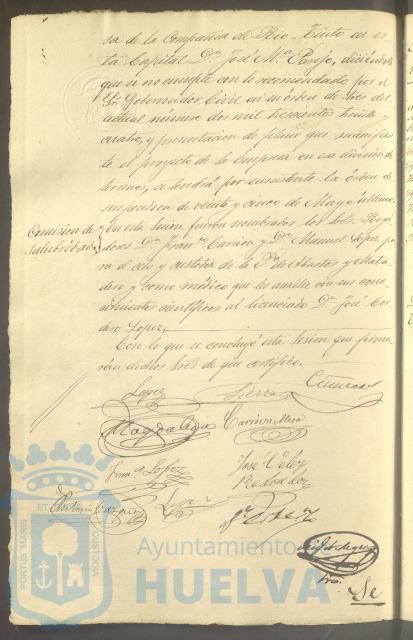 sa de la Compañia de Rio-Tinto en es
ta Capital Dn. José Mª. Parejo, diciendole
que si no cumple con lo recomendado por el
Sor. Gobernador Civil en su órden de tres del
actual número dos mil trescientos treinta y
cuatro, y presentacion de plano que manifies
te el proyecto de la Empresa en esa division de
terreno, se tendrá por subsistente la órden de
suspension de veinte y cinco de Mayo último.
Comision de
Salubridad
en esta Sesion fueron nombrados los Sres. Regi
dores Dn. Franco. Carrion y Dn. Manuel Lopez pa
ra el celo y custodia de la Pza. de Abastos y Mata
dero y como médico que les auxilie con sus cono
cimientos científicos al licenciado Dn. José Cor
dero Lopez.
Con lo que se concluyó esta Sesion que firma
rán dichos Sres. de que certifico.
Lopez Sierra
Magdalena Carrion Mesa
Franco. Lopez José Velez
Redondo
Antonio Vazquez Lopez
PORTUS MARIS ET TERRAE CUSTODIA
Ayuntamiento
HUELVA
Srio.
Se